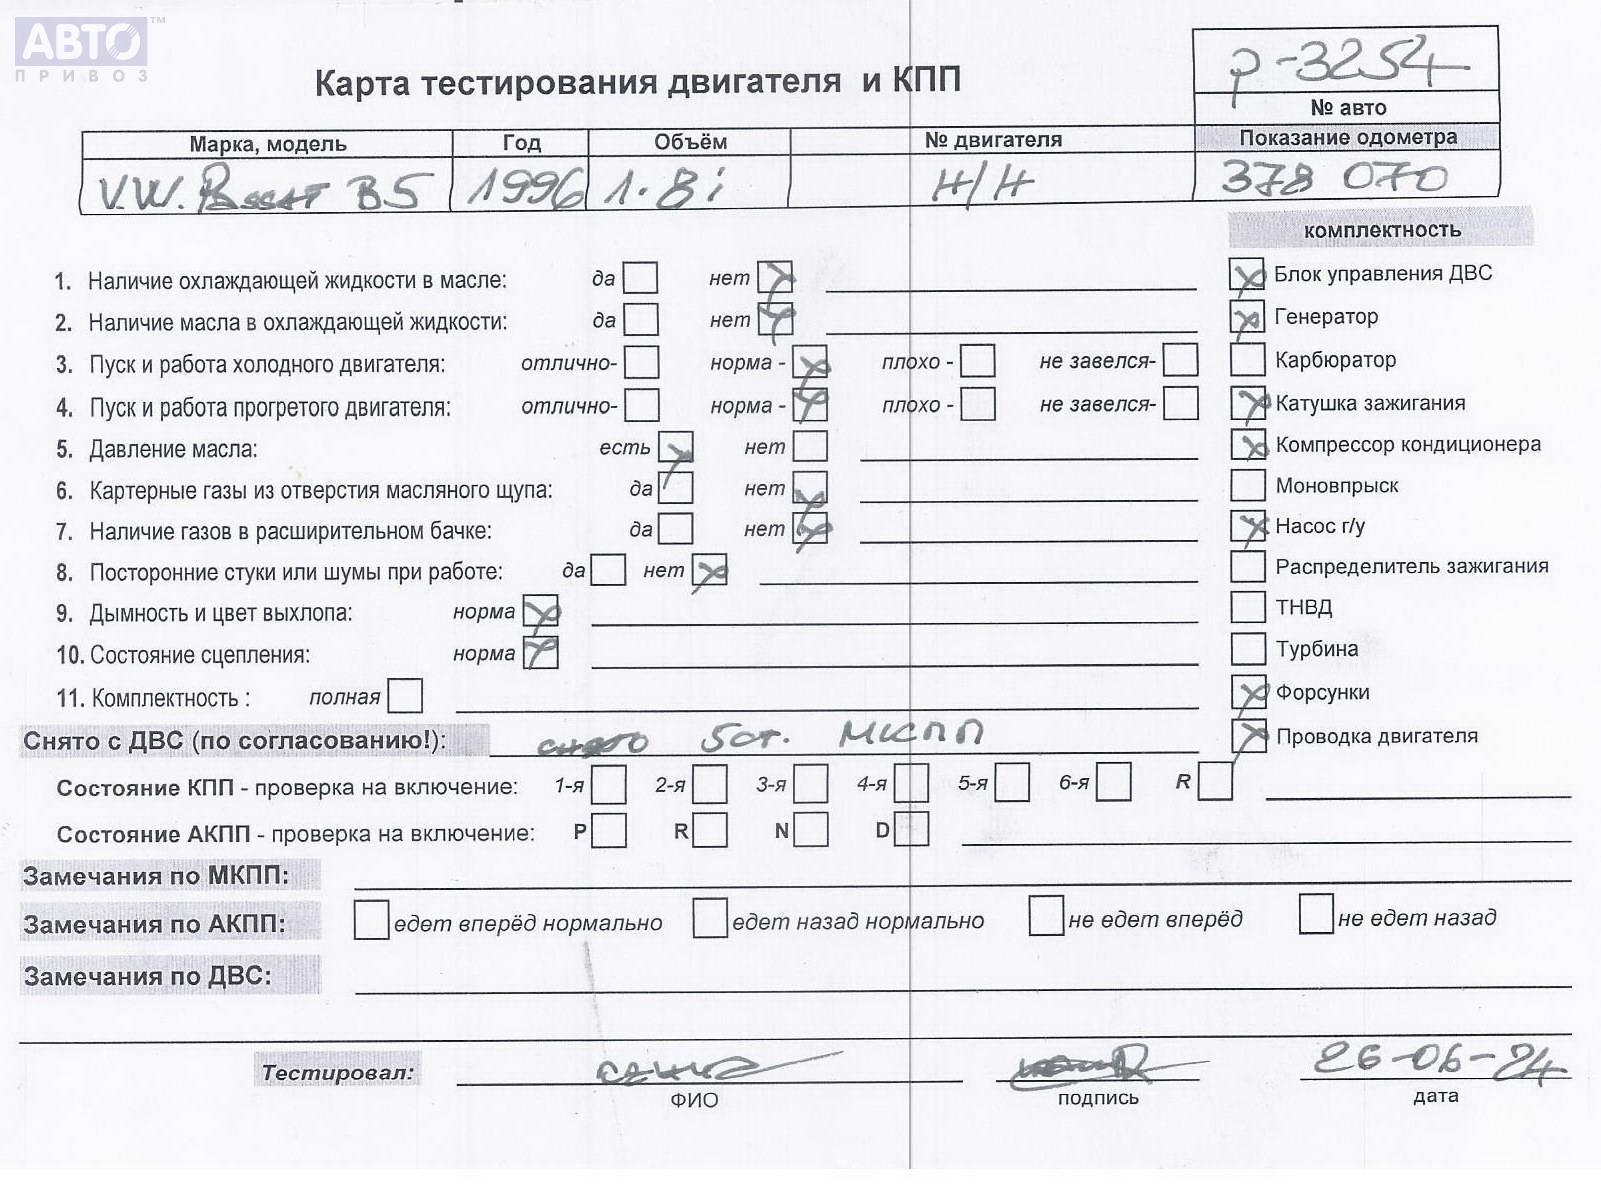 АВТО™
ПРИВОЗ
Карта тестирования двигателя и КПП
р-3254
№ авто
Марка, модель Год Объём № двигателя Показание одометра
V.W. Passat B5 1996 1.8i Н/Н 378 070
комплектность
1. Наличие охлаждающей жидкости в масле: да нет
Блок управления ДВС
2. Наличие масла в охлаждающей жидкости: да нет
Генератор
3. Пуск и работа холодного двигателя: отлично- норма - плохо - не завелся-
Карбюратор
4. Пуск и работа прогретого двигателя: отлично- норма - плохо - не завелся-
Катушка зажигания
5. Давление масла: есть нет
Компрессор кондиционера
6. Картерные газы из отверстия масляного щупа: да нет
Моновпрыск
7. Наличие газов в расширительном бачке: да нет
Насос г/у
8. Посторонние стуки или шумы при работе: да нет
Распределитель зажигания
9. Дымность и цвет выхлопа: норма
ТНВД
10. Состояние сцепления: норма
Турбина
11. Комплектность : полная
Форсунки
Снято с ДВС (по согласованию!): снято 5ст. МКПП
Проводка двигателя
Состояние КПП - проверка на включение: 1-я 2-я 3-я 4-я 5-я 6-я R
Состояние АКПП - проверка на включение: P R N D
Замечания по МКПП:
Замечания по АКПП: едет вперёд нормально едет назад нормально не едет вперёд не едет назад
Замечания по ДВС:
Тестировал: 26-06-24
ФИО подпись дата